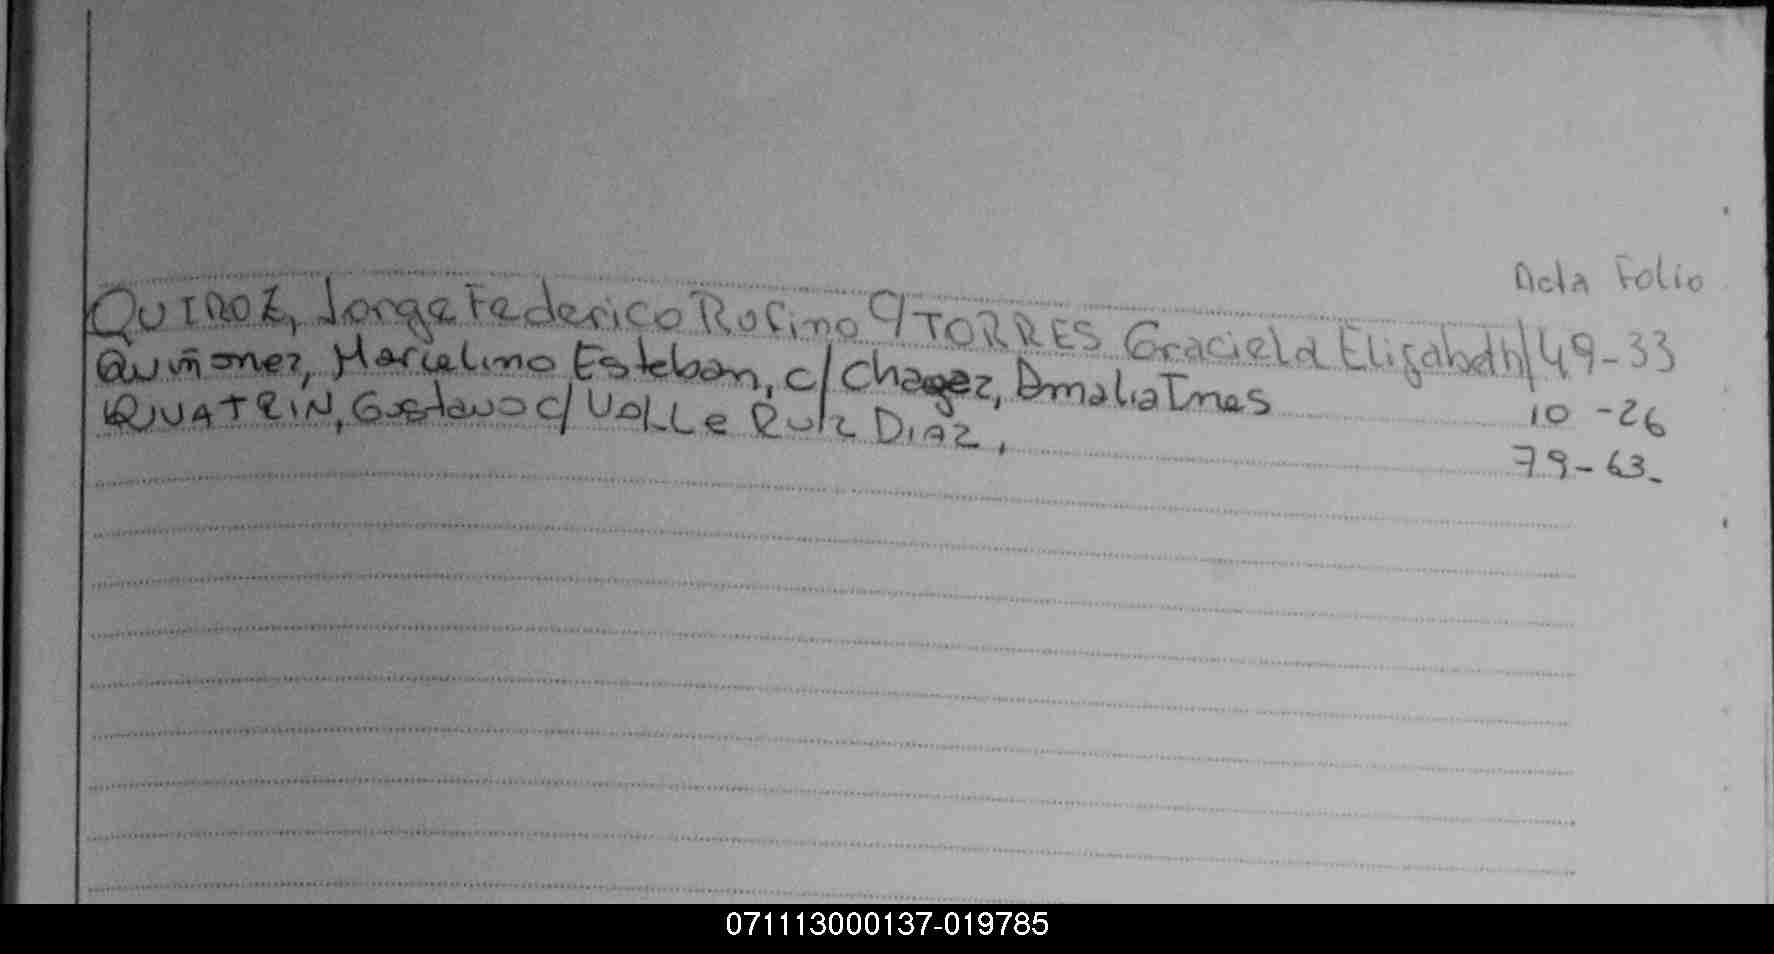 Acta Folio
QUIROZ, Jorge Federico Rofino C/ TORRES Graciela Elizabeth / 49-33
Quiñonez, Marcelino Esteban, c/ Chagez, Amalia Ines 10 - 26
QUATRIN, Gustavo c/ VALLe Ruiz DIAZ, 79-63-
071113000137-019785